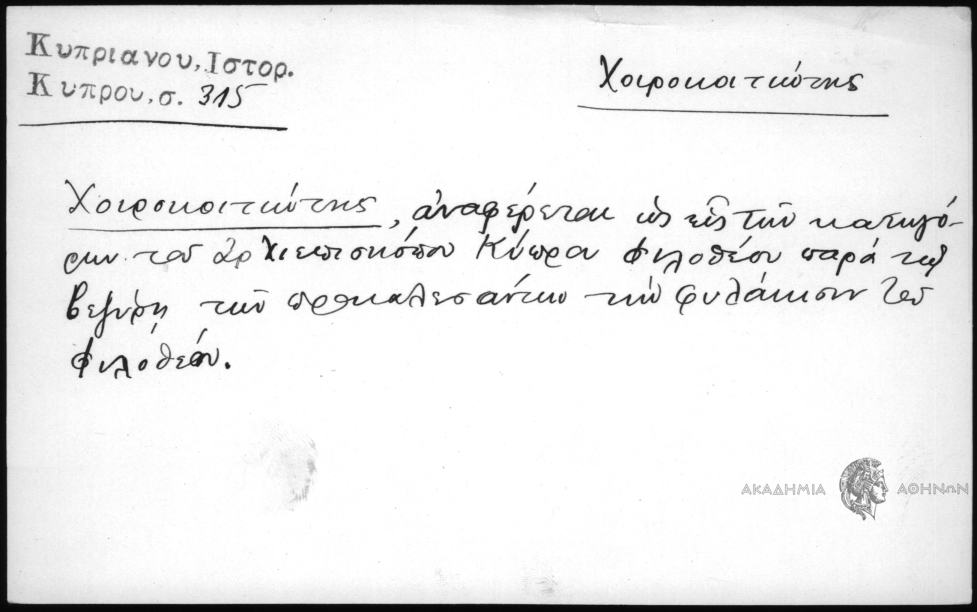 Κυπριανου, Ιστορ.
Κυπρου, σ. 315
Χοιροκοιτιώτης
Χοιροκοιτιώτης, ἀναφέρεται ὡς εἷς τῶν κατηγό-
ρων τοῦ Ἀρχιεπισκόπου Κύπρου Φιλοθέου παρὰ τῷ
Βεζύρῃ τῶν προκαλεσάντων τὴν φυλάκισιν τοῦ
Φιλοθέου.
ΑΚΑΔΗΜΙΑ ΑΘΗΝΩΝ